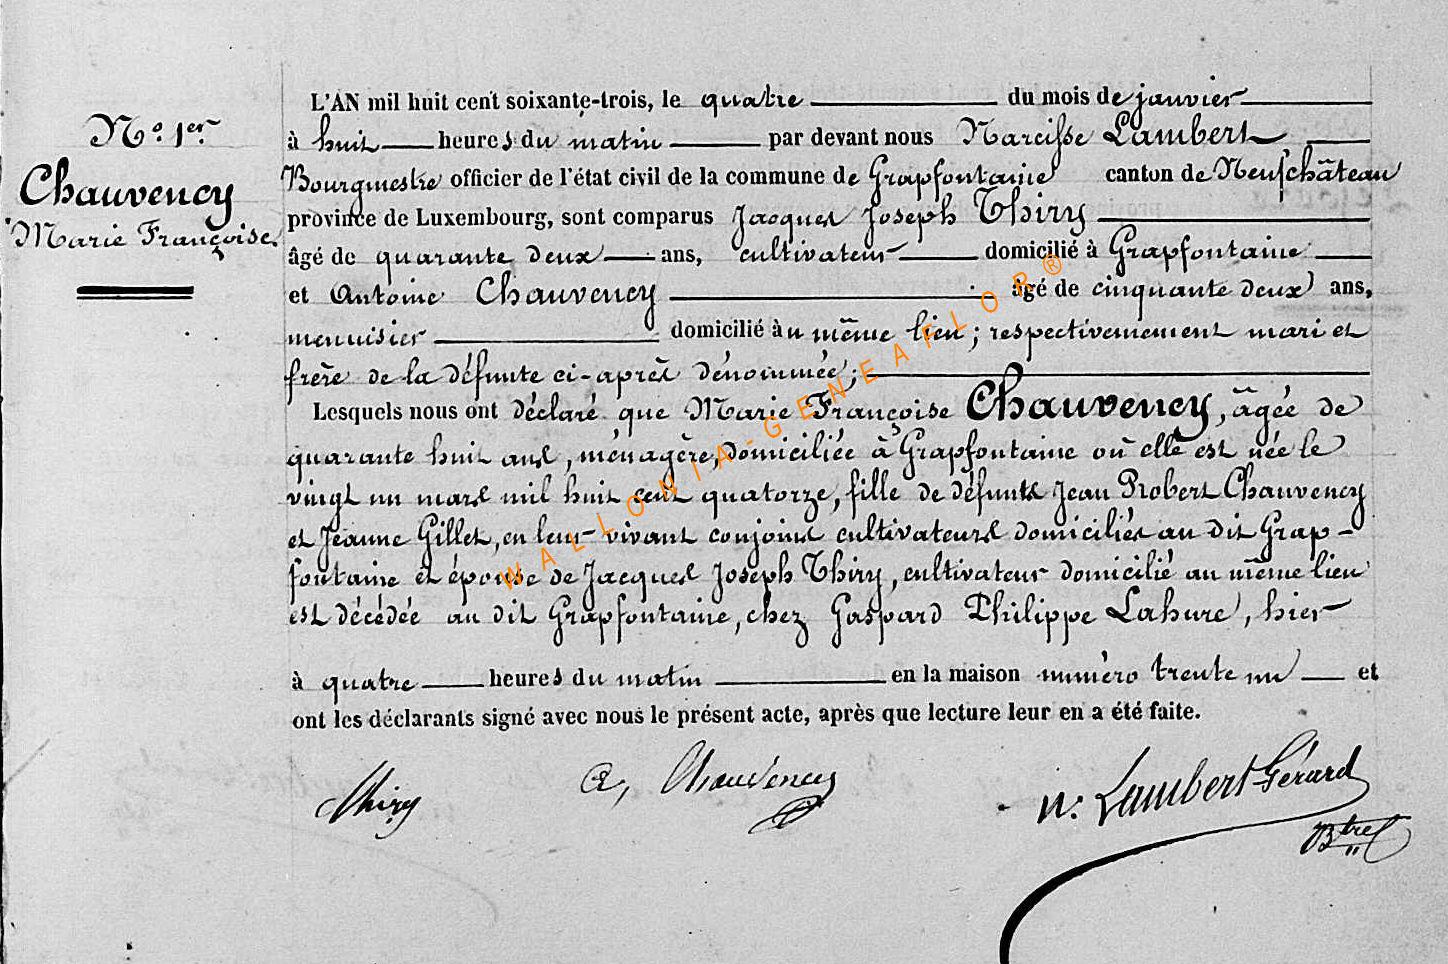 N.o 1er.
Chauvency
Marie Françoise.
L'AN mil huit cent soixante-trois, le quatre du mois de janvier
à huit heures du matin par devant nous Narcisse Lambert
Bourgmestre officier de l'état civil de la commune de Grapfontaine canton de Neufchâteau
province de Luxembourg, sont comparus Jacques Joseph Thiry
âgé de quarante deux ans, cultivateur domicilié à Grapfontaine
et Antoine Chauvency âgé de cinquante deux ans,
menuisier domicilié àu même lieu ; respectivemement mari et
frère de la défunte ci-après dénommée ;
Lesquels nous ont déclaré que Marie Françoise Chauvency, âgée de
quarante huit ans, ménagère, domiciliée à Grapfontaine où elle est née le
vingt un mars mil huit cent quatorze, fille de défunts Jean Probert Chauvency
et Jeanne Gillet, en leur vivant conjoins cultivateurs domiciliés au dit Grap-
fontaine et épouse de Jacques Joseph Thiry, cultivateur domicilié au même lieu
est décédée au dit Grapfontaine, chez Gaspard Philippe Lahure, hier
à quatre heures du matin en la maison numéro trente un et
ont les déclarants signé avec nous le présent acte, après que lecture leur en a été faite.
Thiry A, Chauvency N. Lambert Gérard
Btre
WALLONIA-GENEAFLOR®